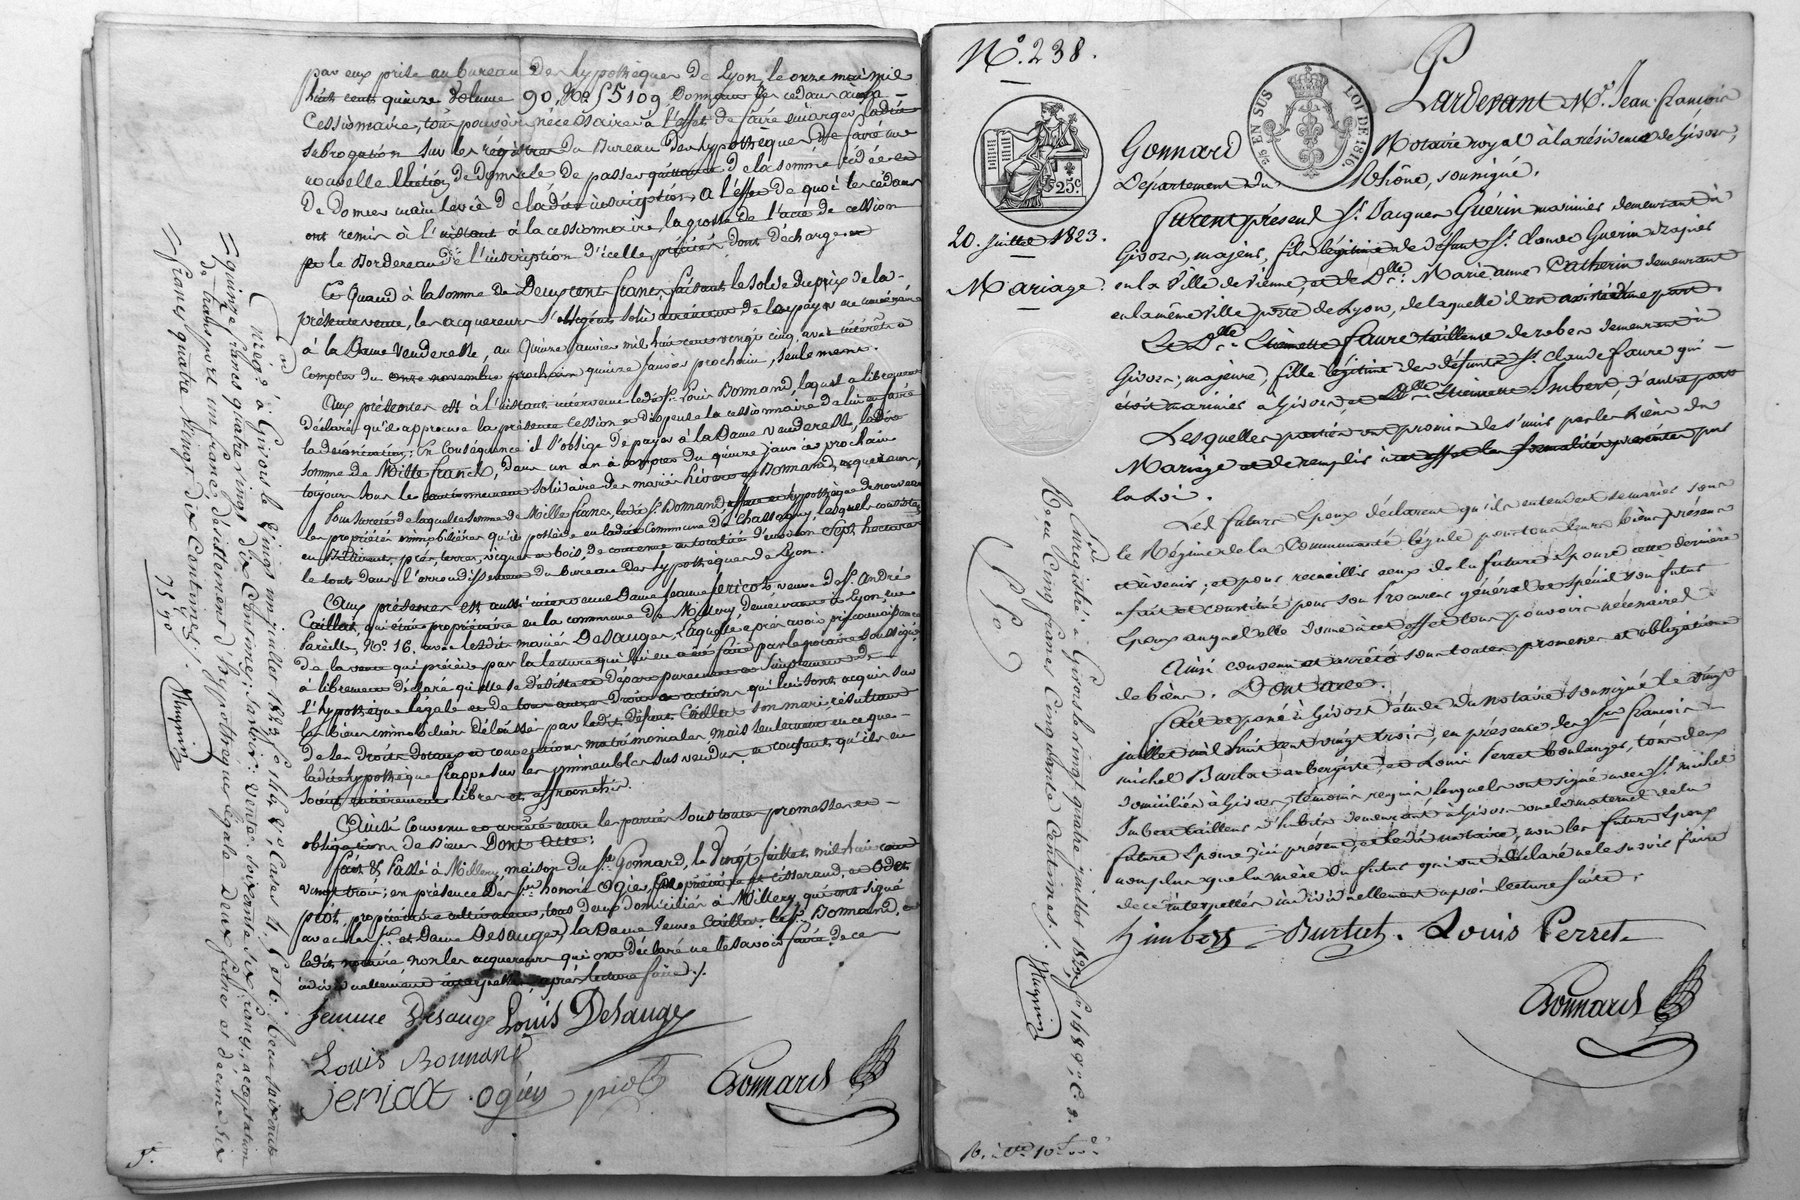 par eux prise au bureau des hypothèques de Lyon, le onze mai mil
huit cent quinze volume 90, No. 5109, Donnant les cédans à la
Cessionnaire, tout pouvoir nécessaire à l'effet de faire émarger ladite
subrogation sur les régistres du Bureau des hypothèques, de faire une
nouvelle Election de domicile de passer quittance de la somme cédée et
de donner main levée de ladite inscription, à l'effet de quoi les cédans
ont remis à l'instant à la cessionnaire, la grosse de l'acte de cession
et le Bordereau de l'inscription d'icelle, précités, dont décharge.
Et Quand à la somme de Deux cent francs, faisant le solde du prix de la
présente vente, les acquéreurs s'obligent solidairement de la payer
à la Dame Venderesse, au Quinze janvier mil huit cent vingt cinq, avec intérêts à
compter du quinze janvier prochain, seulement.
Aux présentes est à l'instant intervenu ledit Sr. Louis Bonnand, lequel a librement
déclaré qu'il approuve la présente Cession et dispense la cessionnaire de lui en faire
la dénonciation; En Conséquence il s'oblige de payer à la Dame Venderesse, ladite
somme de Mille francs, dans un an à compter du quinze janvier prochain
toujours sous le cautionnement solidaire des mariés Bonnand, acquéreurs,
Pour sureté de laquelle somme de Mille francs, ledit Sr. Bonnand, affecte et hypothèque de nouveau
les propriétés immobilières qu'il possède en ladite Commune de Chassagny, lesquels consistent
en Bâtiment, prés, terres, vignes et bois, de contenue en totalité d'environ Sept hectares
le tout dans l'arrondissement du bureau des hypothèques de Lyon.
Aux présentes est aussi intervenue Dame Jeanne Jericot veuve de Sr. André
Caillat, qui était propriétaire en la commune de Millery, demeurante à Lyon, rue
No. 16, avec lesdits mariés Desauges, Laquelle après avoir pris connaissance
de la vente qui précède par la lecture qui lui en a été faite par le notaire soussigné
a librement déclaré qu'elle se désiste et départ purement et simplement de
l'hypothèque légale et de tous autres Droits et actions qui lui sont acquis sur
les biens immobiliers délaissés par ledit défunt Caillat son mari, résultant
de ses Droits Dotaux et conventions matrimoniales mais seulement en ce que
ladite hypothèque frappe sur les immeubles sus vendus, et consent, qu'ils en
soient entièrement libres et affranchis.
Ainsi Convenu et arrêté entre les parties sous toutes promesses et
obligations de Biens Dont Acte;
Fait & Passé à Millery, maison du Sr. Gonnard, le Vingt juillet mil huit cent
vingt trois; en présence des Srs. honoré Ogier, et
piot, propriétaire cultivateur, tous deux domiciliés à Millery, qui ont signé
avec les Sr. et Dame Desauges, la Dame Veuve Caillat, le Sr. Bonnand, et
ledit notaire non les acquéreurs qui ont déclaré ne le savoir faire de ce
individuellement interpellés après lecture faite./.
femme Desauge Louis Desauge
Louis Bonnand
jericot ogier piot Gonnard
Enregé. à Givors le Vingt un juillet 1823 fo. 148 Vo. Cases 4, 5 et 6. Reçu savoir
quinze francs quatre Vingt dix Centimes; savoir: vente, soixante six francs, acceptation
de transport un franc, désistement d'hypothèque légale deux francs et décime six
francs quatre vingt dix Centimes./.
75,,90
5e.
No. 238.
25c
EN SUS
LOI DE 1816
20. juillet 1823.
Mariage.
Pardevant Me. Jean-francois
Gonnard Notaire royal à la résidence de Givors,
Département du Rhône, soussigné.
Furent présens Sr. Jacques Guérin marinier demeurant à
Givors, majeur, fils légitime de défunt Sr. Claude Guérin
en la Ville de Vienne, et de Dlle. Marie anne Catherin demeurant
en la même ville porte de Lyon, de laquelle il est assisté d'une part.
Et Dlle. Etiennette faure tailleuse de robes demeurant à
Givors, majeure, fille légitime des défunts Sr. Claude faure qui
étoit marinier à Givors, et Dlle. Etiennette Imbert, d'autre part
Lesquelles parties ont promis de s'unir par les liens du
Mariage et de remplir à cet effet les formalités présentes par
la Loi.
Les futurs Epoux déclarent qu'ils entendent se marier sous
le Régime de la Communauté légale pour tous leurs biens présens
et à venir; et pour recueillir ceux de la future Epouse cette dernière
a fait et constitué pour son Procureur général et spécial son futur
Epoux auquel elle donne à cet effet tous pouvoirs nécessaires
Ainsi convenu et arrêté sous toutes promesses et obligations
de biens. Dont acte.
Fait et passé à Givors étude du notaire soussigné le vingt
juillet mil huit cent vingt trois, en présence des Srs. francois
michel Burlat aubergiste, et Louis Perret boulanger, tous deux
domiciliés à Givors, témoins requis lesquels ont signé avec Sr. michel
Imbert tailleur d'habits demeurant à Givors oncle maternel de la
future Epouse, ici présent, et ledit notaire, non les futurs Epoux
non plus que la mère du futur qui ont déclaré ne le savoir faire
de ce interpellés individuellement après lecture faite.
Himbert Burlat. Louis Perret
Gonnard
Enregistré à Givors le vingt quatre juillet 1823, fo. 149 Vo. C. 2.
Reçu Cinq francs Cinquante Centimes./.